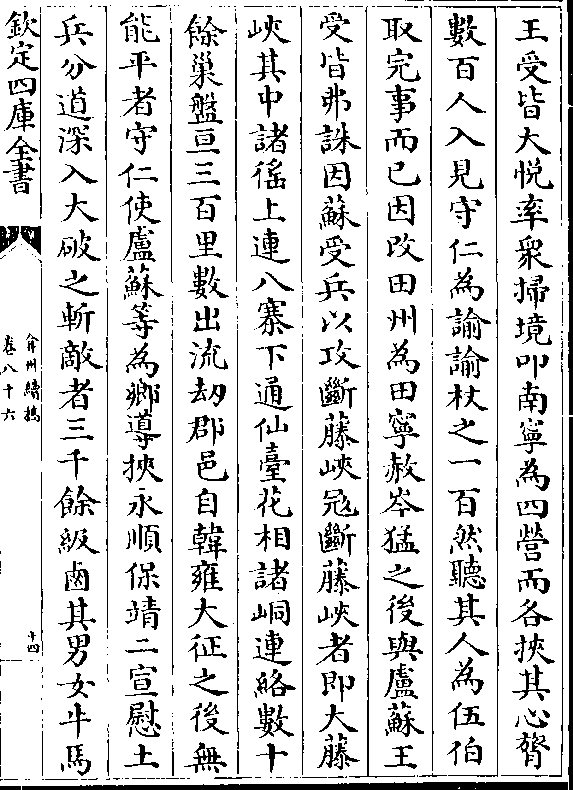 王受皆大悅率衆掃境叩南寧為四營而各挾其心膂
數百人入見守仁為諭諭杖之一百然聽其人為伍伯
取完事而已因改田州為田寧赦岑猛之後與盧蘇王
受皆弗誅因蘇受兵以攻斷藤峽冦斷藤峽者即大藤
峽其中諸徭上連八寨下通仙臺花相諸峒連絡數十
餘巢盤亘三百里數出流劫郡邑自韓雍大征之後無
能平者守仁使盧蘇等為鄉導挾永順保靖二宣慰土
兵分道深入大破之斬敵者三千餘級鹵其男女牛馬
欽定四庫全書
弇州續稿
卷八十六
十四